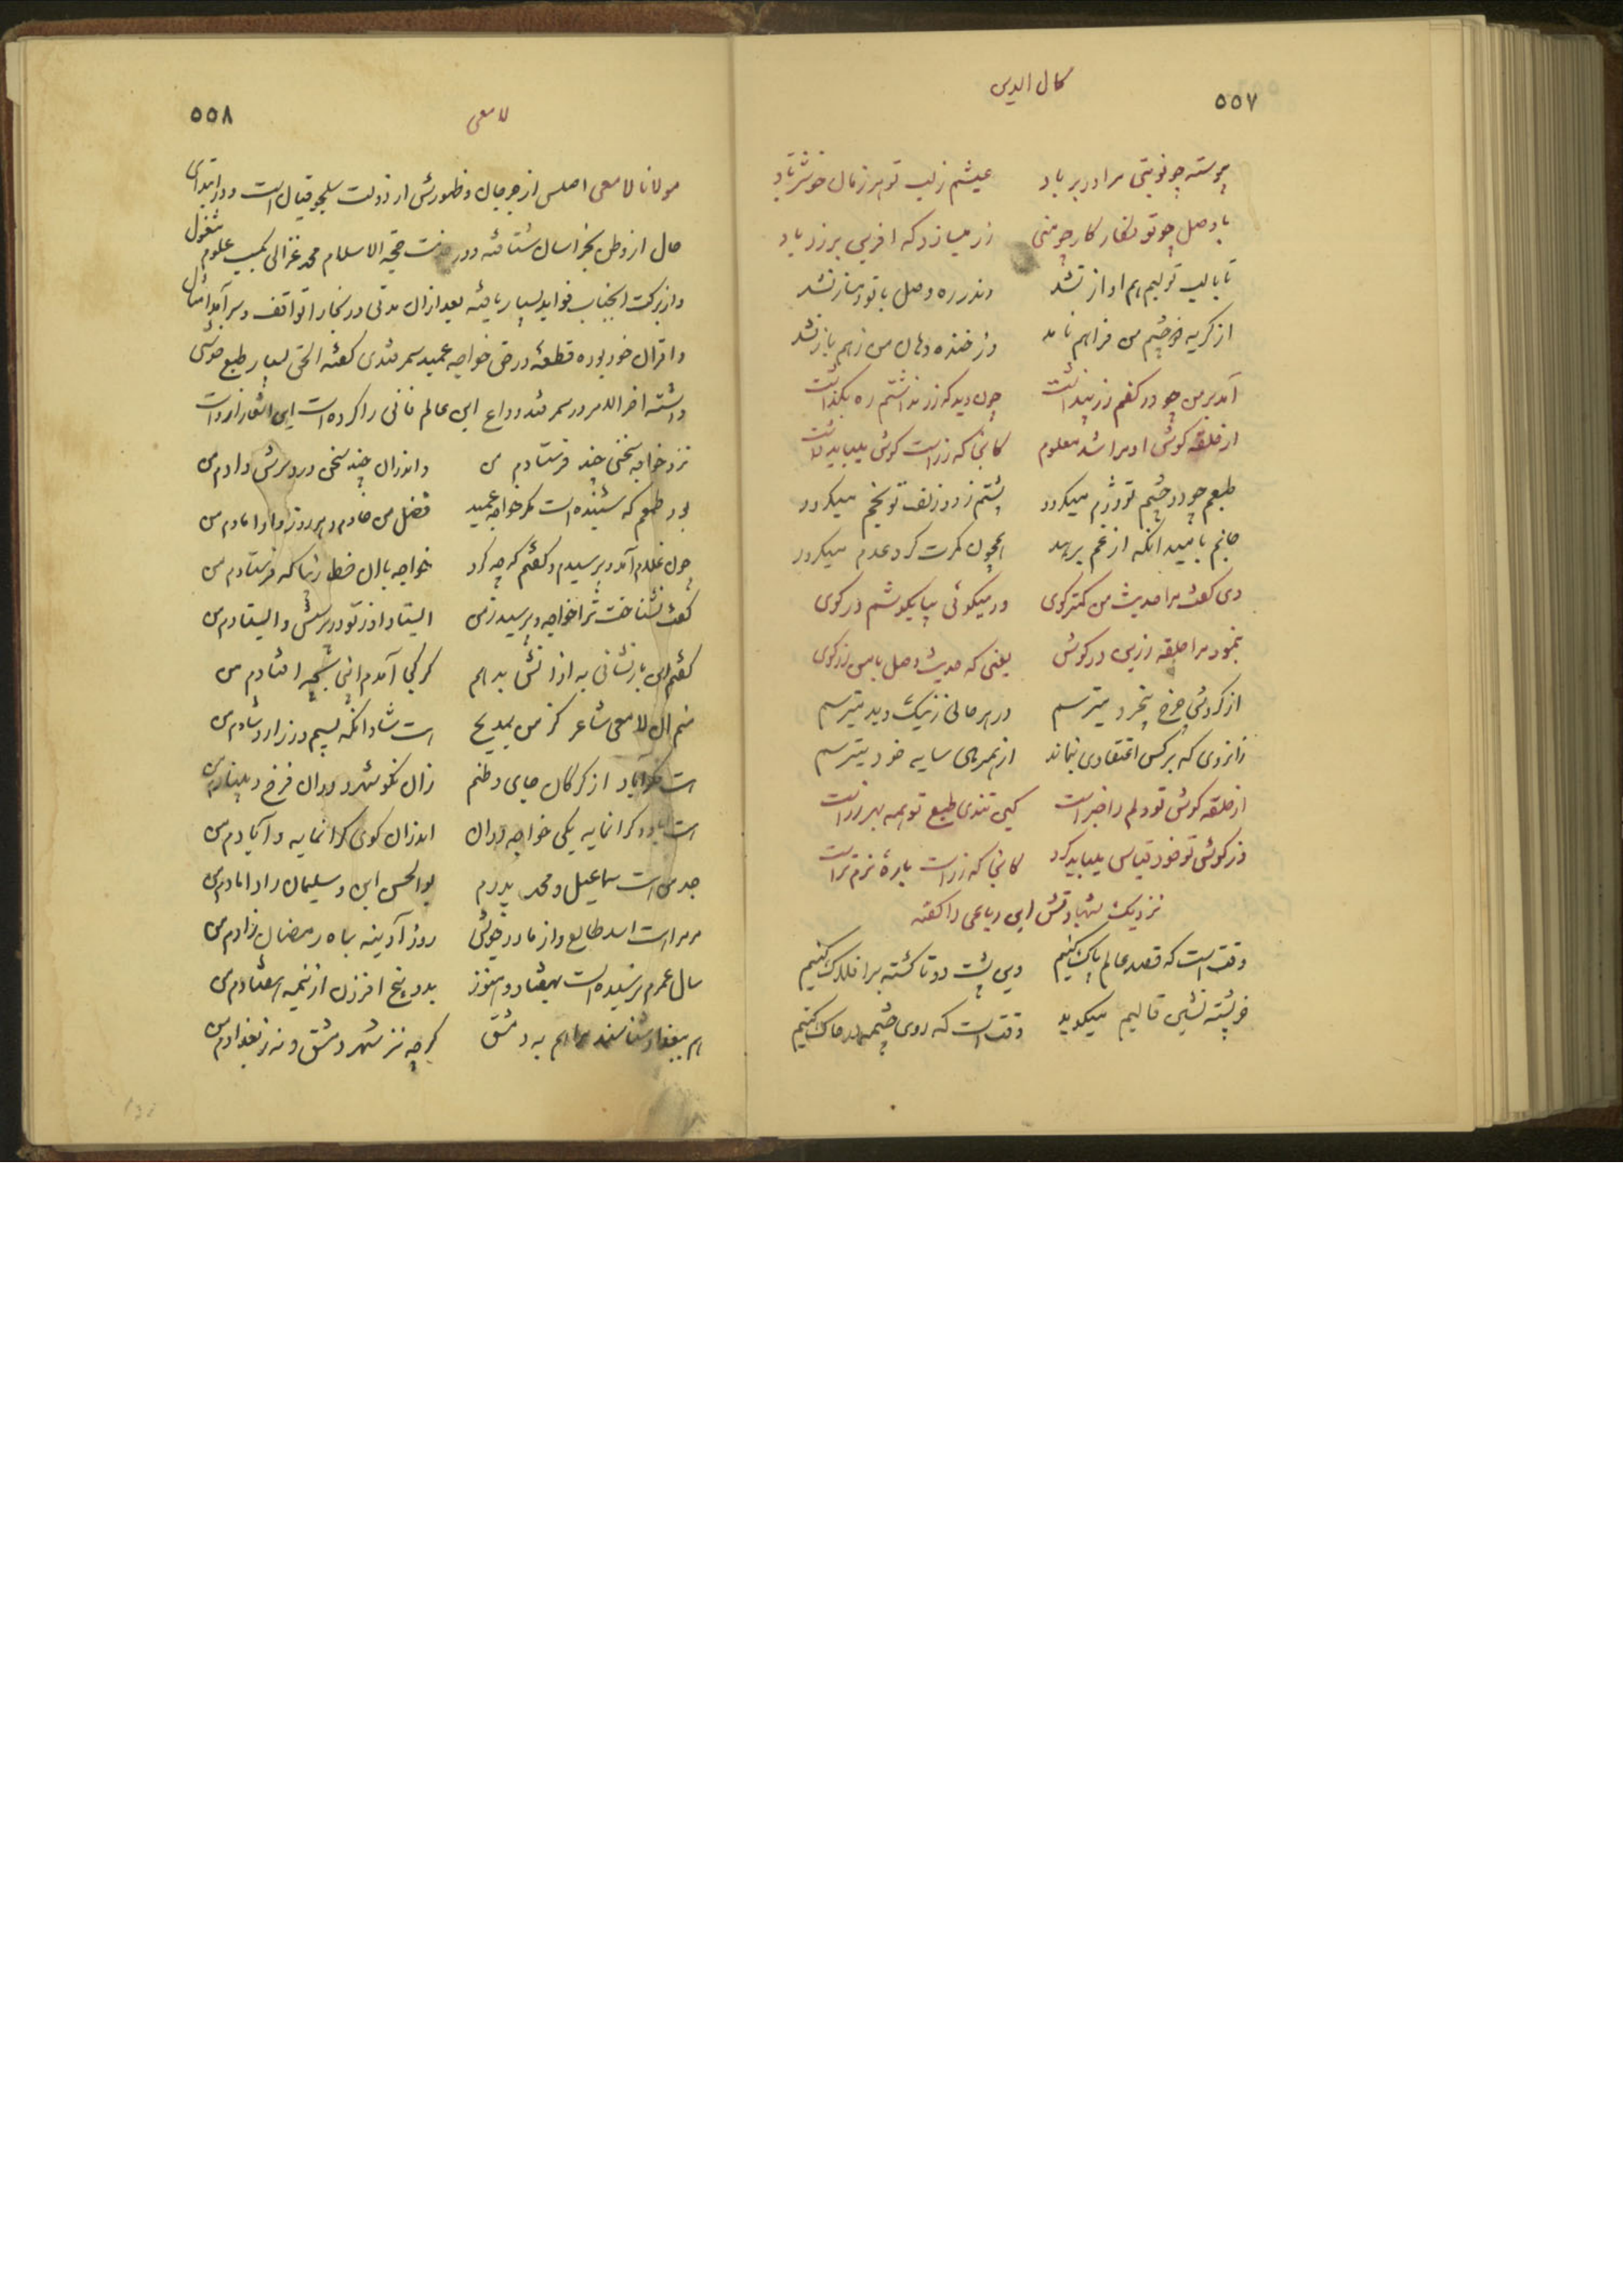 ۵۵۷
کمال الدین
پیوسته چو نوبتی مرا در بر باد عیشم ز لب تو هر زمان خوشتر باد
با وصل چو تو نگار کار چو منی زر میسازد که آفرین بر زر باد
تا با لب تو لبم هم آواز نشد وندر ره وصل با تو دمساز نشد
از گریه دو چشم من فراهم نامد وز خنده دهان من ز هم باز نشد
آمد بر من چو در کفم زر پنداشت چون دید که زر نداشتم ره بگذاشت
از حلقه گوش او مرا شد معلوم کانجا که زر است گوش میباید داشت
طبعم چو دو چشم تو دژم میگردد پشتم ز دو زلف تو بخم میگردد
جانم بامید آنکه از غم برهد همچون کمرت گرد عدم میگردد
دی گفت مرا حدیث من کمتر گوی ور میگوئی بیا بگوشم در گوی
بنمود مرا حلقه زرین در گوش یعنی که حدیث وصل با من زر گوی
از گردش چرخ بیخرد میترسم در هر حالی ز نیک و بد میترسم
زانروی که بر کس اعتقادی بنماند از همرهی سایه خود میترسم
از حلقه گوش تو دلم را خبر است کین تندی طبع تو همه بهر زر است
در گوش تو خود قیاس میباید کرد کانجا که زر است پاره نرم تر است
نزدیک شهادتش این رباعی را گفته
وقت است که قصد عالم پاک کنیم وین پشت دو تا گشته بر افلاک کنیم
خر پشته نشین قالبم میگوید وقت است که روی چشمه در خاک کنیم
۵۵۸
لامعی
مولانا لامعی اصلس از جرجان و ظهورش از دولت سلجوقیان است و در ابتدای
حال از وطن بخراسان شتافته و در خدمت حجة الاسلام محمد غزالی بکسب علوم مشغول
و از برکت آنجناب فواید بسیار یافته بعد از آن مدتی در بخارا توقف و سر آمد امثال
و اقران خود بوده قطعهٔ در حق خواجه عمید سمرقندی گفته الحق بسیار طبع خوشی
داشته آخر الامر در سمرقند وداع این عالم فانی را کرده است این اشعار از اوست
نزد خواجه سخنی چند فرستادم من و اندر آن چند سخن درد سرش دادم من
بود طمعم که شنیده است مگر خواجه عمید فضل من خادم و هر روز و را دادم من
چون غلام آمد و پرسیدم و گفتم که چه کرد خواجه با آن خط زیبا که فرستادم من
گفت نشناخت ترا خواجه و پرسید ز من ایستاد از تو و پرسش و ایستادم من
گفتم این باز نشانی به از آتش بدهم کز کجا آمدم اینجا بچه افتادم من
منم آن لامعی شاعر کز من بمدیح است شاد آنکه بسیم و زر ازو شادم من
است بکرآباد از گرگان جای وطنم زان نکو شهر و دران فرخ و بنیادم من
است آباد و گرانمایه یکی خواجه دران اندر آن کوی گرانمایه و آبادم من
جد من است سماعیل و محمد پدرم بو الحسن ابن و سلیمان را دامادم من
مر مرا است اسد طالع و از مادر خویش روز آدینه بماه رمضان زادم من
سال عمرم نرسیده است بهفتاد و هنوز بدو پنج افزون از نیمه هفتادم من
هم ببغداد شناسند مرا هم به دمشق گرچه نز شهر دمشق و نه ز بغدادم من